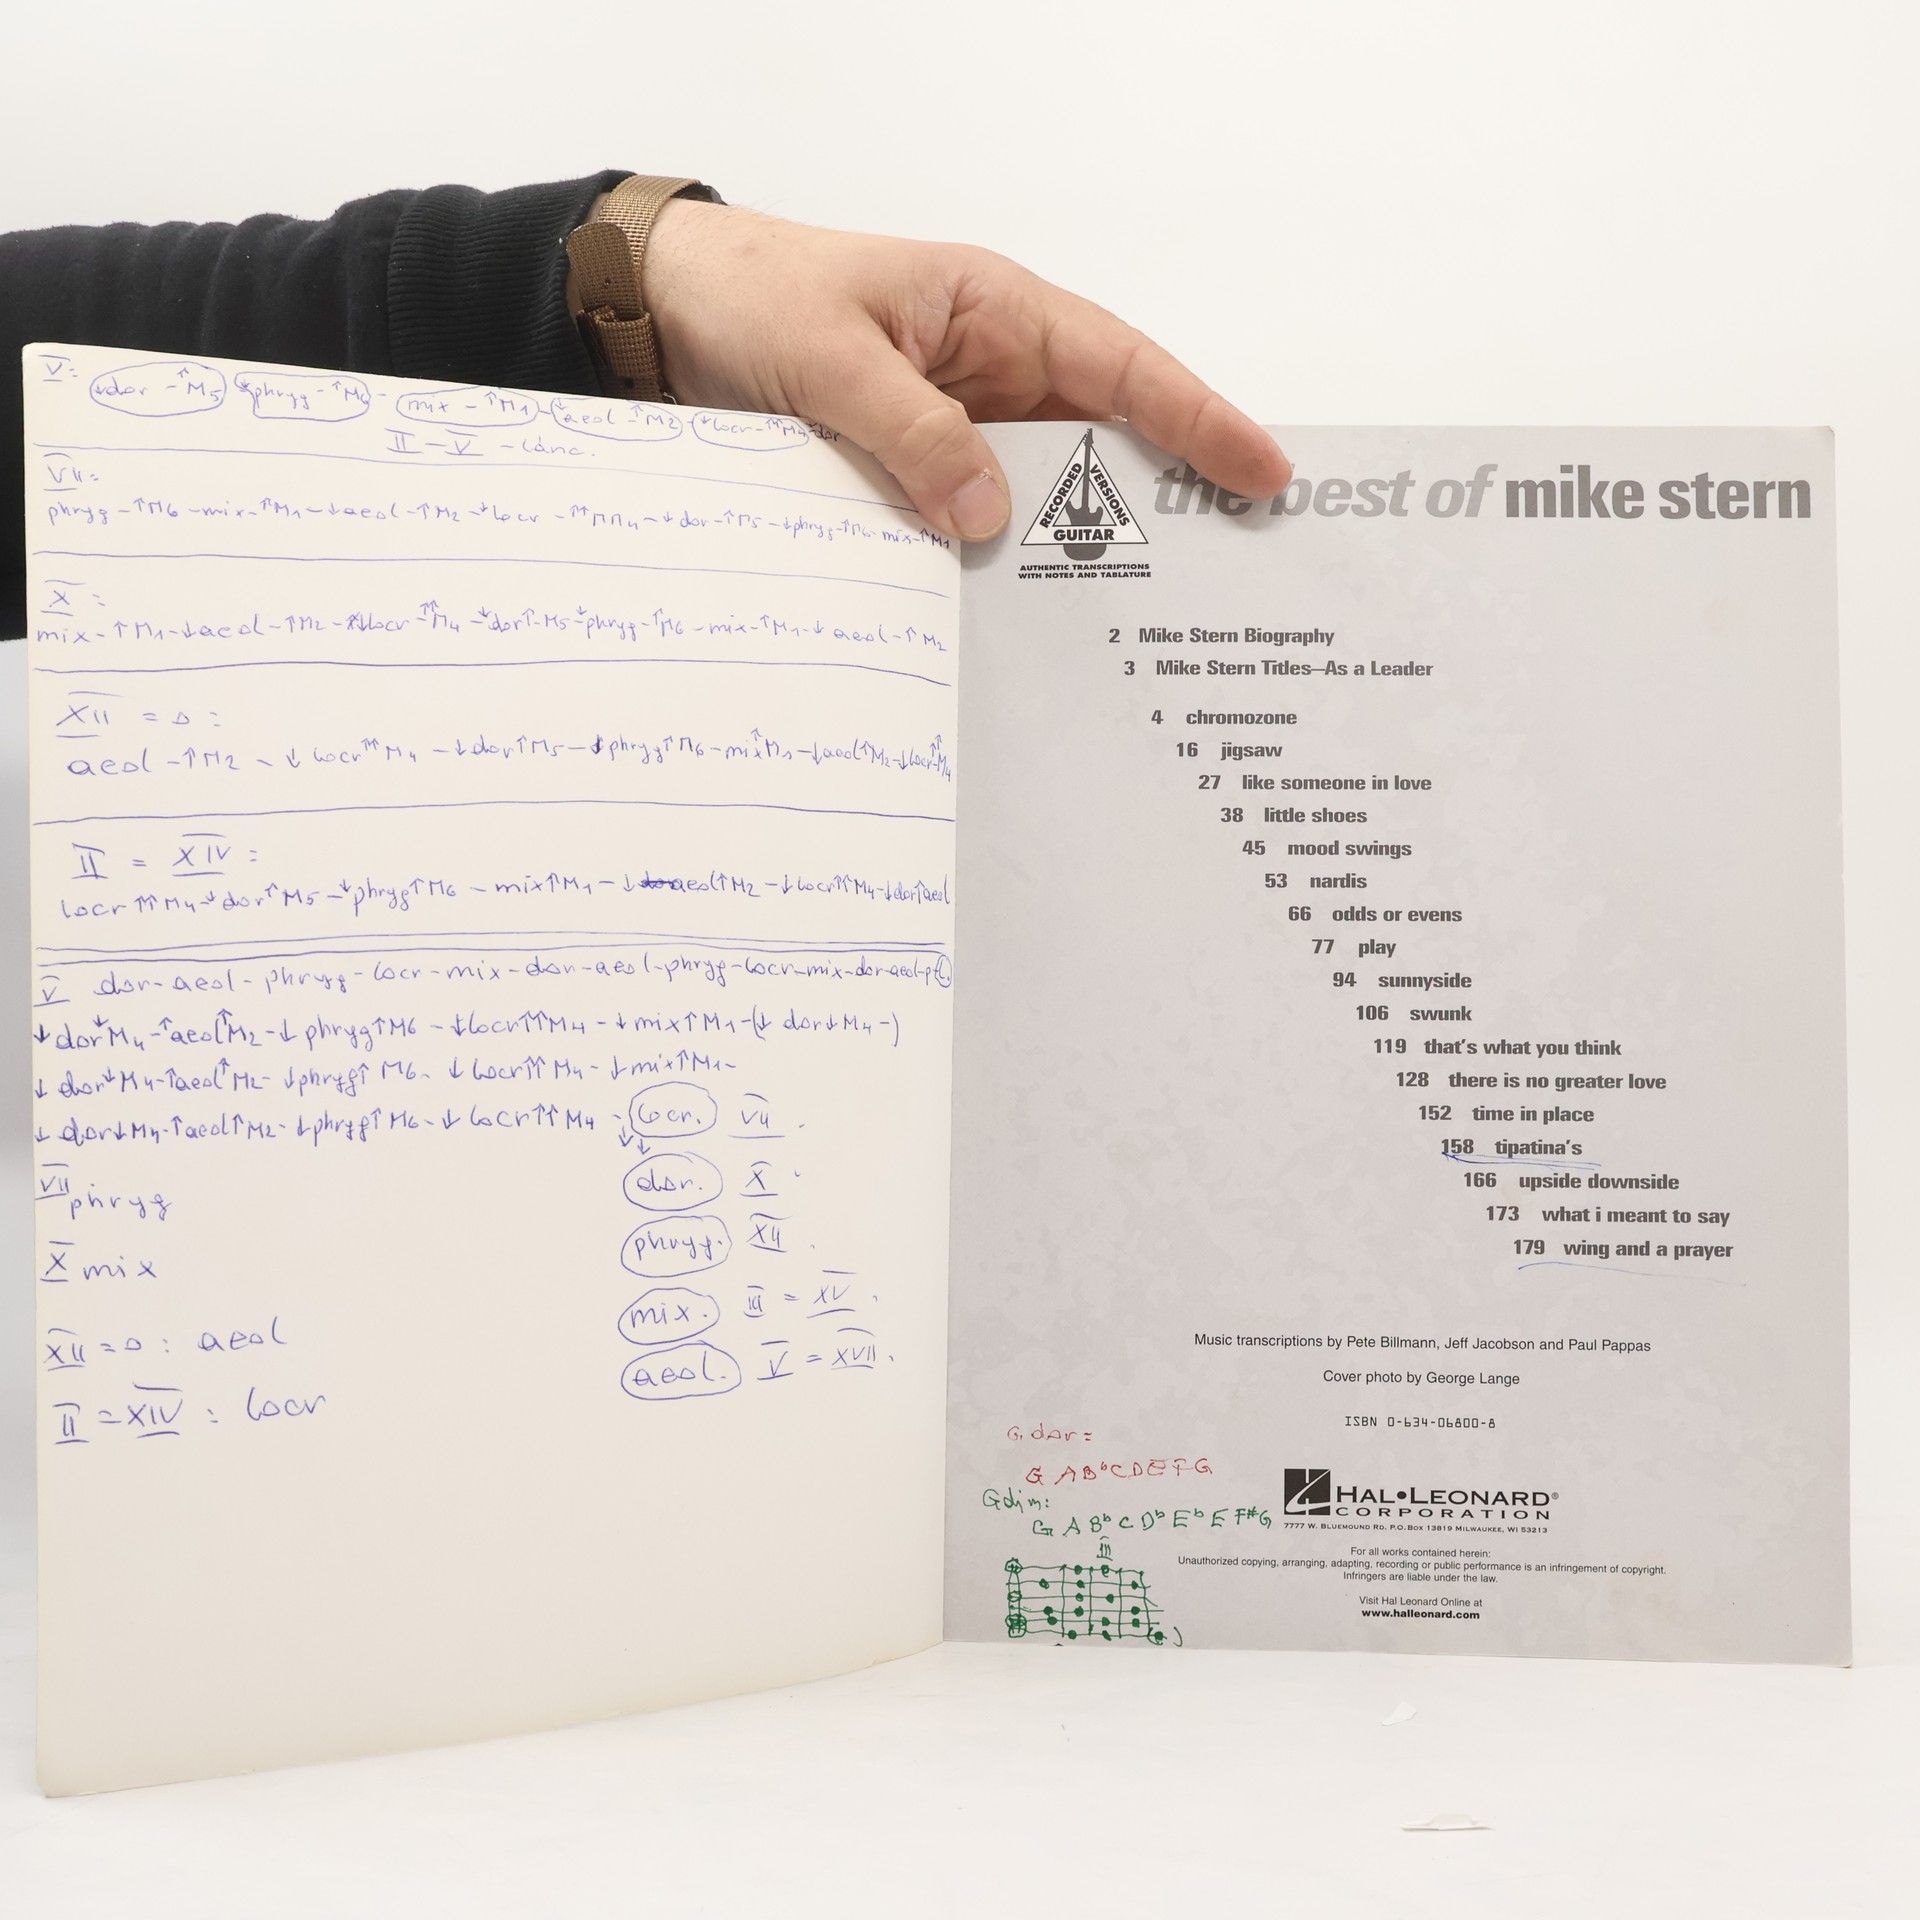 V: ↓dor-↑M5 ↓phryg-↑M6- mix-↑M1- ↓aeol-↑M2- ↓locr-↑↑M4-dor
II-V-lánc.
VII:
phryg-↑M6-mix-↑M1-↓aeol-↑M2-↓locr-↑↑M4-↓dor-↑M5-↓phryg-↑M6-mix-↑M1
X:
mix-↑M1-↓aeol-↑M2-↓locr-↑↑M4-↓dor↑-M5-↓phryg-↑M6-mix-↑M1-↓aeol-↑M2
XII = 0:
aeol-↑M2-↓locr↑↑M4-↓dor↑M5-↓phryg↑M6-mix↑M1-↓aeol↑M2-↓locr↑↑M4
II = XIV:
locr↑↑M4-↓dor↑M5-↓phryg↑M6-mix↑M1-↓aeol↑M2-↓locr↑↑M4-↓dor↑aeol
V dor-aeol-phryg-locr-mix-dor-aeol-phryg-locr-mix-dor-aeol-
↓dor↓M4-↑aeol↑M2-↓phryg↑M6-↓locr↑↑M4-↓mix↑M1-(↓dor↓M4-)
↓dor↓M4-↑aeol↑M2-↓phryg↑M6-↓locr↑↑M4-↓mix↑M1-
↓dor↓M4-↑aeol↑M2-↓phryg↑M6-↓locr↑↑M4-locr. VII.
↓↓
dor. X.
VII phryg
phryg. XII.
X mix
mix. III = XV.
XII = 0: aeol
aeol. V = XVII.
II = XIV: locr
RECORDED VERSIONS
GUITAR
AUTHENTIC TRANSCRIPTIONS
WITH NOTES AND TABLATURE
the best of mike stern
2 Mike Stern Biography
3 Mike Stern Titles—As a Leader
4 chromozone
16 jigsaw
27 like someone in love
38 little shoes
45 mood swings
53 nardis
66 odds or evens
77 play
94 sunnyside
106 swunk
119 that's what you think
128 there is no greater love
152 time in place
158 tipatina's
166 upside downside
173 what i meant to say
179 wing and a prayer
Music transcriptions by Pete Billmann, Jeff Jacobson and Paul Pappas
Cover photo by George Lange
ISBN 0-634-06800-8
G dor=
G A Bb C D E F G
Gdim:
G A Bb C Db Eb E F# G
III
HAL•LEONARD®
CORPORATION
7777 W. BLUEMOUND RD. P.O. BOX 13819 MILWAUKEE, WI 53213
For all works contained herein:
Unauthorized copying, arranging, adapting, recording or public performance is an infringement of copyright.
Infringers are liable under the law.
Visit Hal Leonard Online at
www.halleonard.com